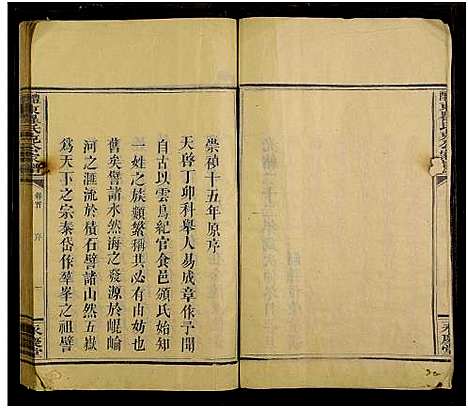 崇禎十五年原序
天啓丁卯科舉人易成章作予聞
自古以雲鳥紀官食邑頒氏始知
一姓之族類繁稱其必有由妨也
舊矣譬諸水然海之發源於崐崘
河之滙流於積石譬諸山然五嶽
為天下之宗泰岱作羣峯之祖譬
卷首 序 一
永慶堂